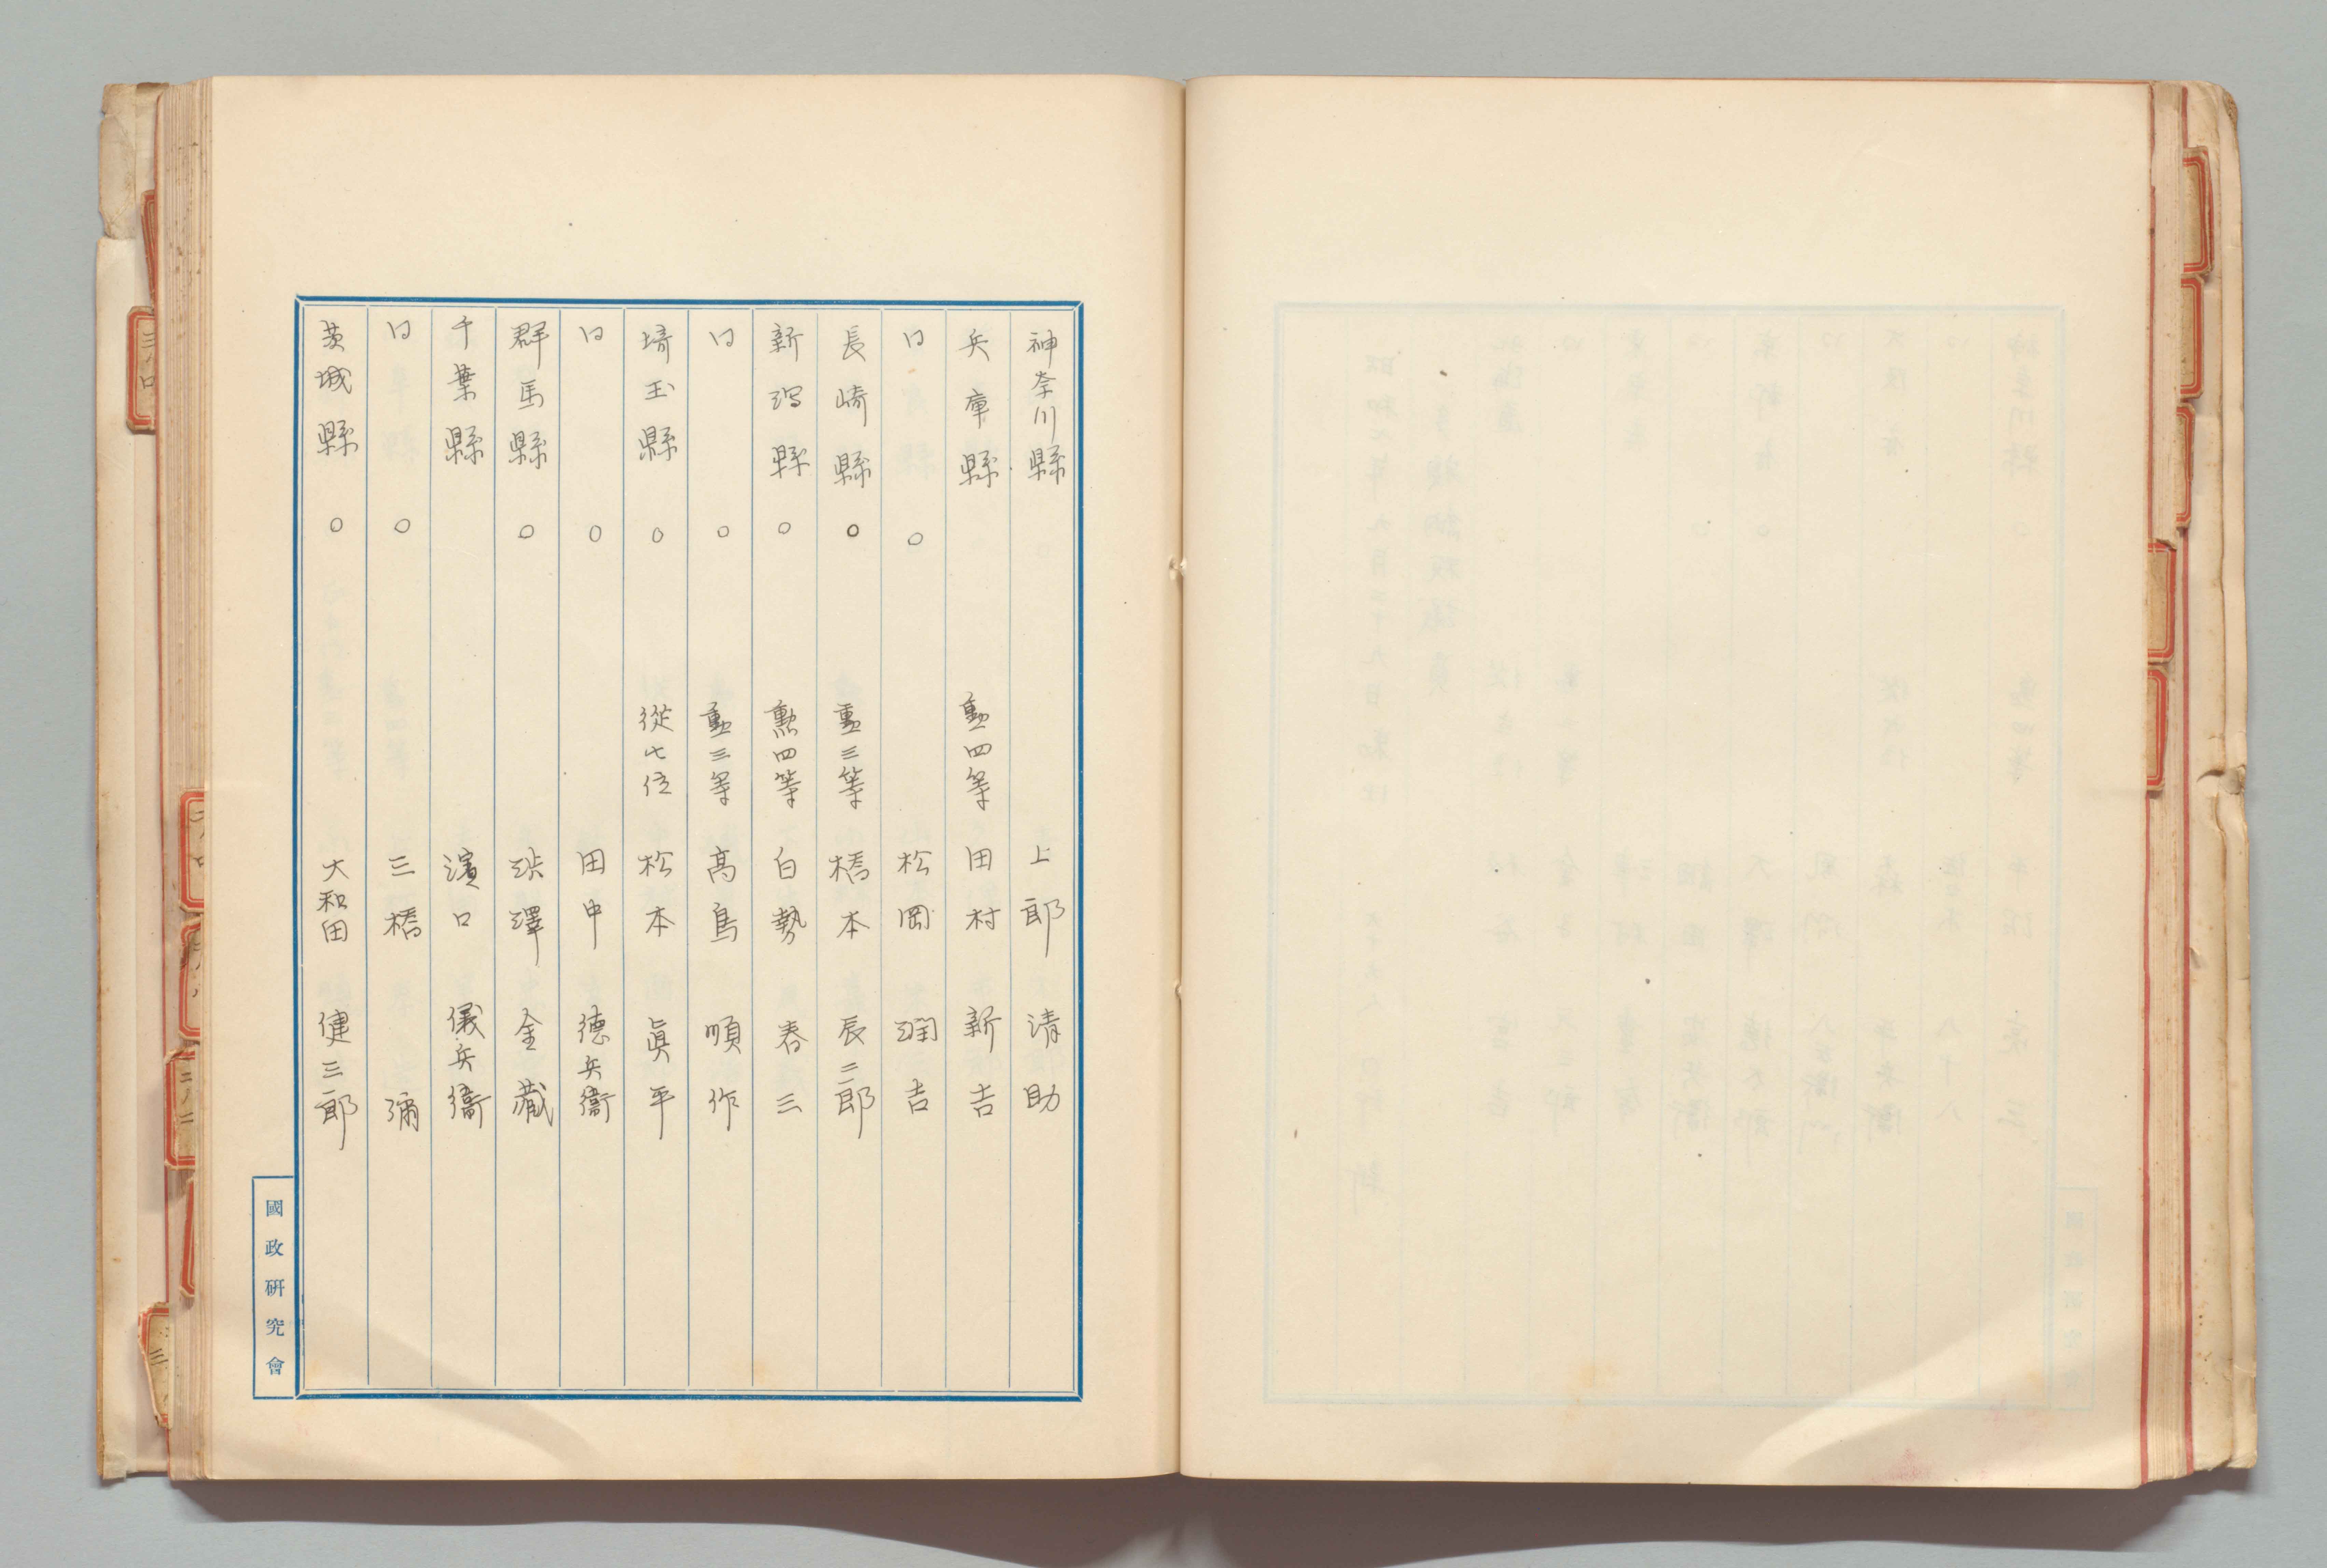 神奈川縣 上郎 清助
兵庫縣 勳四等 田村 新吉
〃 ○ 松岡 潤吉
長崎縣 ○ 勳三等 橋本 辰二郎
新潟縣 ○ 勲四等 白勢 春三
同 ○ 勳三等 高鳥 順作
埼玉縣 ○ 從七位 松本 眞平
同 ○ 田中 德兵衞
群馬縣 ○ 澁澤 金藏
千葉縣 濱口 儀兵衞
同 ○ 三橋 彌
茨城縣 ○ 大和田 健三郎
國政研究會